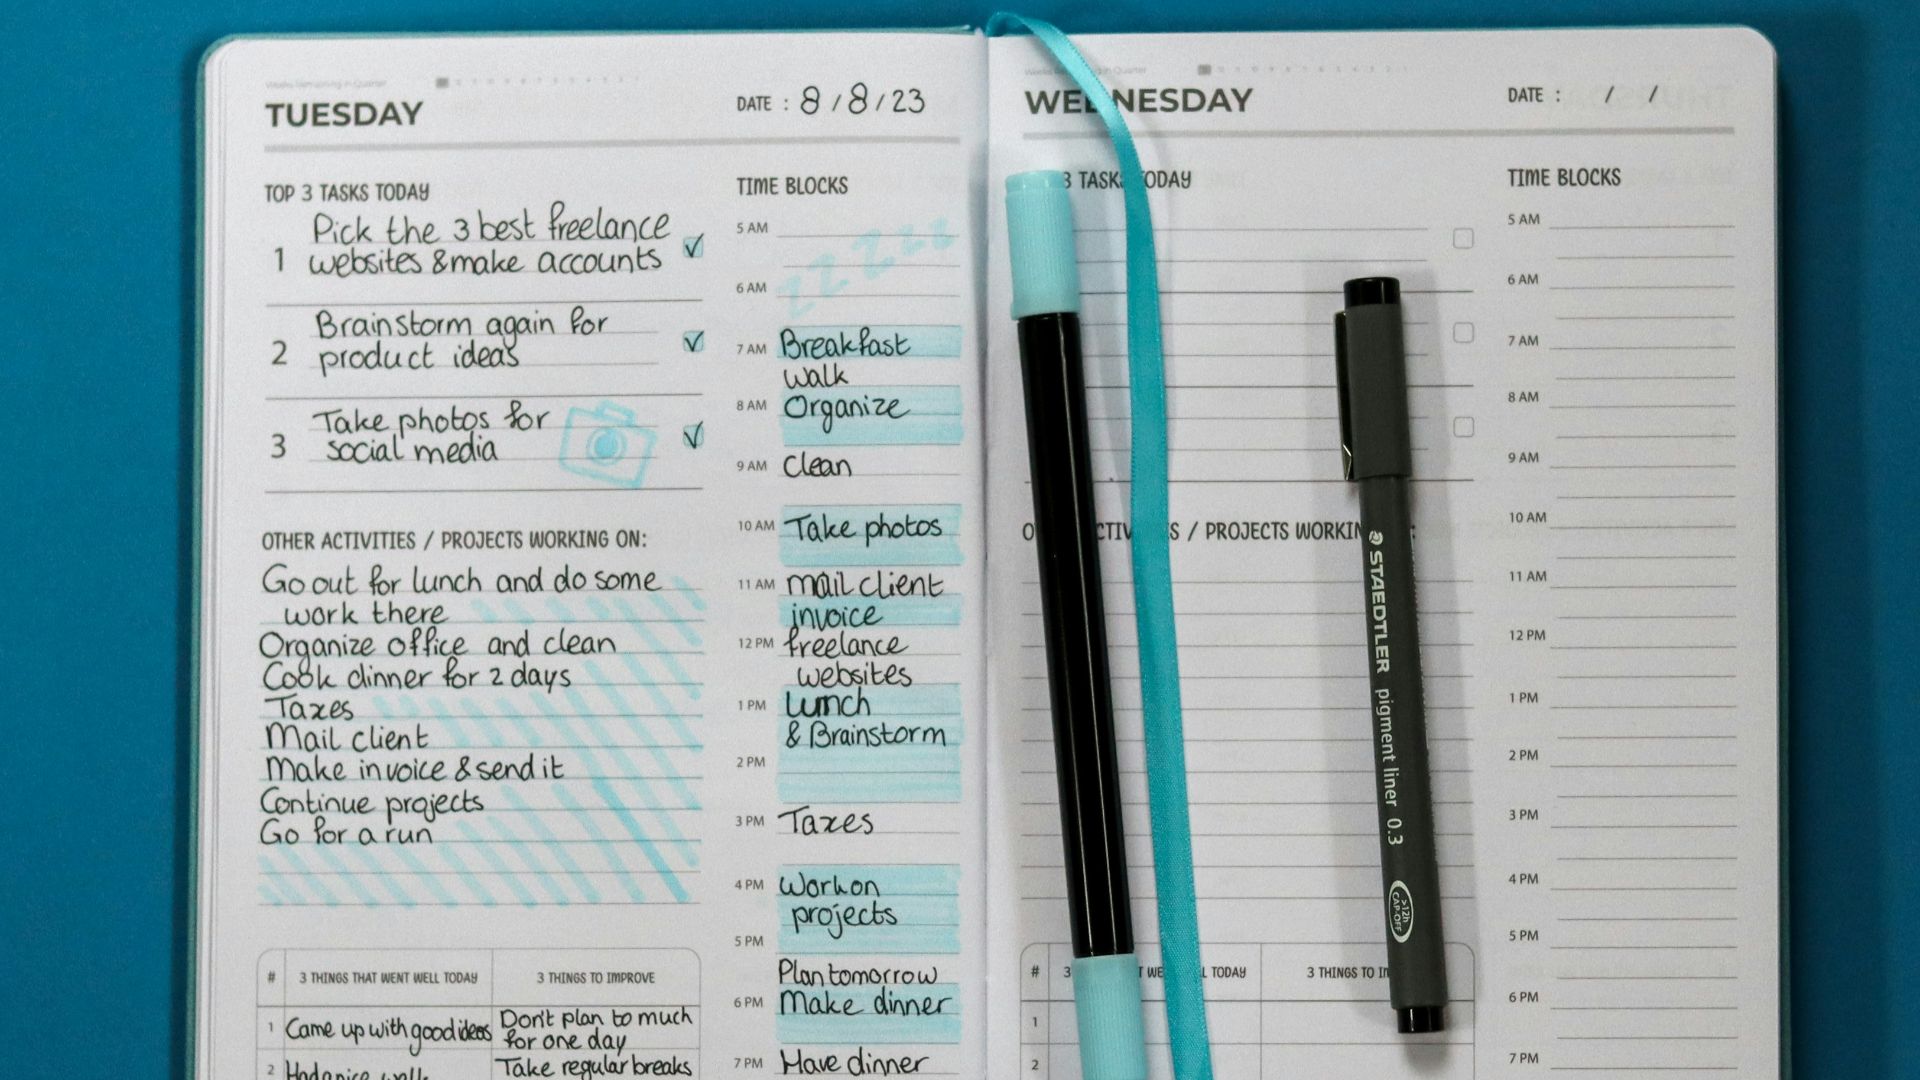 Weeks Remaining in Quarter
TUESDAY
DATE : 8 / 8 / 23
TOP 3 TASKS TODAY
1 Pick the 3 best freelance
websites & make accounts
2 Brainstorm again for
product ideas
3 Take photos for
social media
OTHER ACTIVITIES / PROJECTS WORKING ON:
Go out for lunch and do some
work there
Organize office and clean
Cook dinner for 2 days
Taxes
Mail client
Make invoice & send it
Continue projects
Go for a run
# 3 THINGS THAT WENT WELL TODAY 3 THINGS TO IMPROVE
1 Came up with good ideas Don't plan to much
for one day
2 Had a nice walk Take regular breaks
TIME BLOCKS
5 AM zzZzzz
6 AM
7 AM Breakfast
walk
8 AM Organize
9 AM Clean
10 AM Take photos
11 AM mail client
invoice
12 PM freelance
websites
1 PM Lunch
& Brainstorm
2 PM
3 PM Taxes
4 PM Work on
projects
5 PM
Plan tomorrow
6 PM Make dinner
7 PM Have dinner
in Quarter
WEDNESDAY
DATE : / /
3 TASKS TODAY
ACTIVITIES / PROJECTS WORKIN :
# 3 WE L TODAY 3 THINGS TO IM
1
2
TIME BLOCKS
5 AM
6 AM
7 AM
8 AM
9 AM
10 AM
11 AM
12 PM
1 PM
2 PM
3 PM
4 PM
5 PM
6 PM
7 PM
STAEDTLER pigment liner 0.3
>12h
CAP-OFF